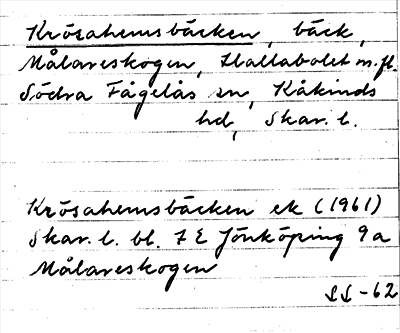 Krösahemsbäcken, bäck,
Målareskogen, Hallabolet m.fl.
Södra Fågelås sn, Kåkinds
hd, Skar. l.
Krösahemsbäcken ek (1961)
Skar. l. bl. 7 E Jönköping 9a
Målareskogen
SS-62